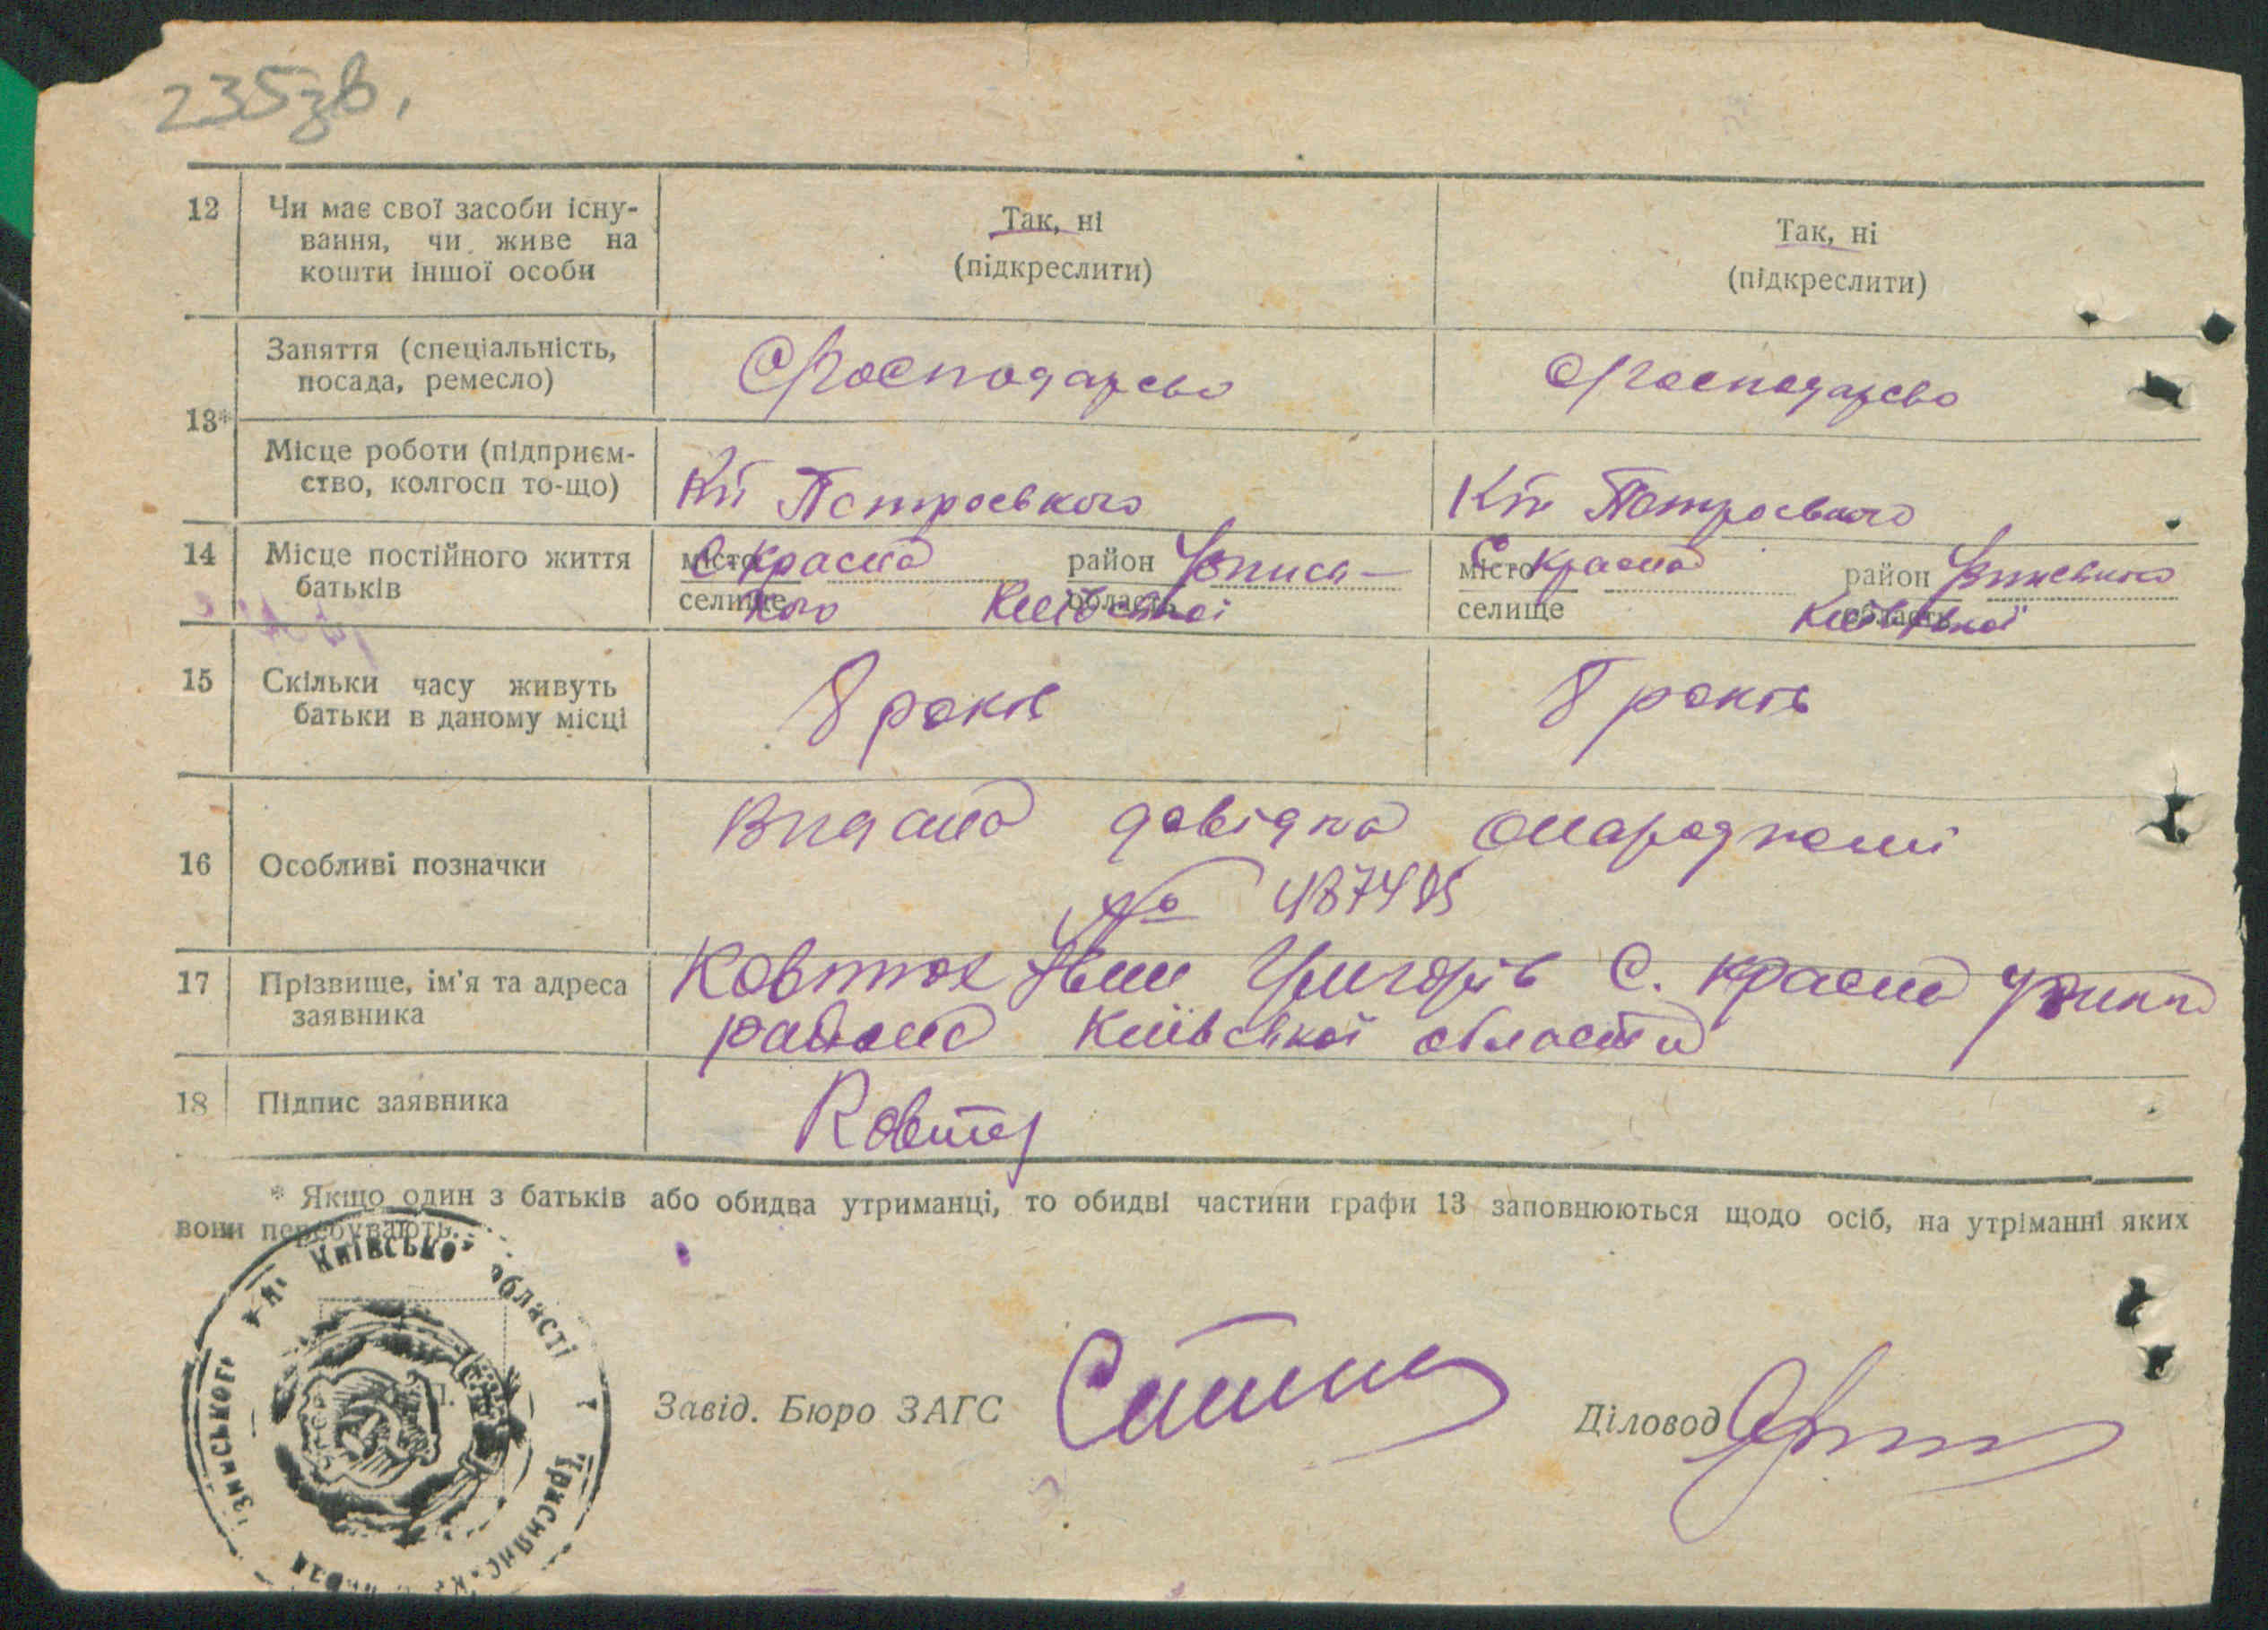 235зв.
12 Чи має свої засоби існу-
вання, чи живе на
кошти іншої особи
Так, ні
(підкреслити)
Так, ні
(підкреслити)
13*
Заняття (спеціальність,
посада, ремесло)
Місце роботи (підприєм-
ство, колгосп то-що)
Кп Петровського
Кп Петровського
14 Місце постійного життя
батьків
місто С Красна район
селище кого область Київської
місто С Красна район
селище область Київської
15 Скільки часу живуть
батьки в даному місці
8 років
8 років
16 Особливі позначки
Видана довідка
№ 487485
17 Прізвище, ім'я та адреса
заявника
Григорів С. Красна
района Київської області
18 Підпис заявника
* Якщо один з батьків або обидва утриманці, то обидві частини графи 13 заповнюються щодо осіб, на утріманні яких
вони перебувають.
Київської області
Завід. Бюро ЗАГС
Діловод